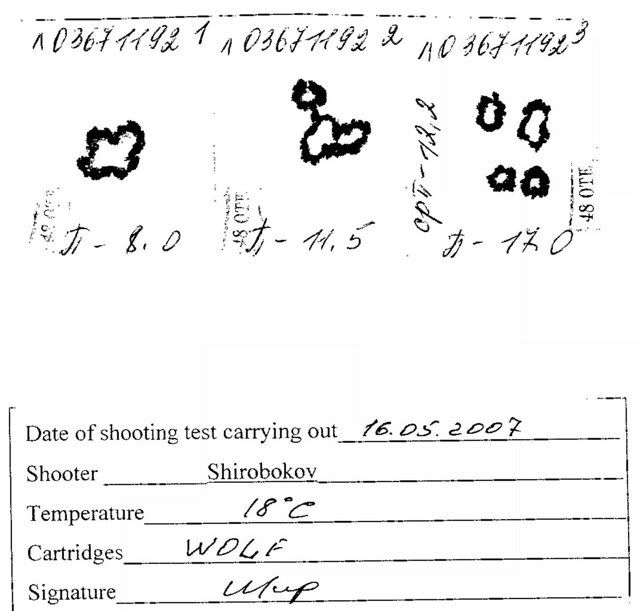 Л03671192 1
Л03671192 2
Л03671192 3
П-8.0
П-11.5
срП-12,2
П-17.0
48 ОТК
48 ОТК
48 ОТК
Date of shooting test carrying out 16.05.2007
Shooter Shirobokov
Temperature 18°C
Cartridges WOLF
Signature